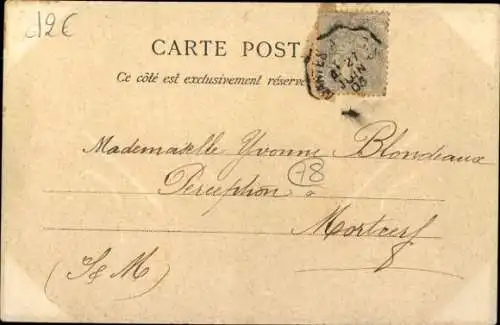 12€
CARTE POST
Ce côté est exclusivement réservé
27
JUIN
05
Mademoiselle Yvonne Blondeaux
78
Perception à
Mortcerf
(S & M)